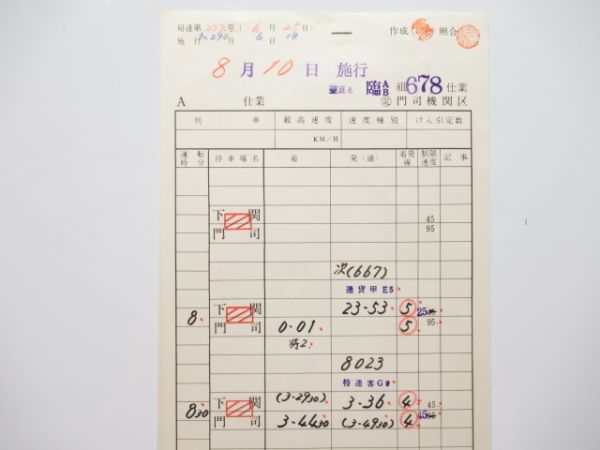 局達第272号(6月25日)
作成 照合
施行
8月10日 施行
臨AB組678仕業
A 仕業
門司機関区
列車 最高速度 速度種別 けん引定数
KM/H
運転時分 停車場名 着 発(通) 着発線 制限速度 記事
下関 45
門司 95
次(667)
通貨甲E5
8. 下関 23-53. 5
門司 0-01. 5 95
将2.
8023
特通客G9
830 下関 (3-2930) 3-36. 4 45
門司 3-4430 (3-4930) 4